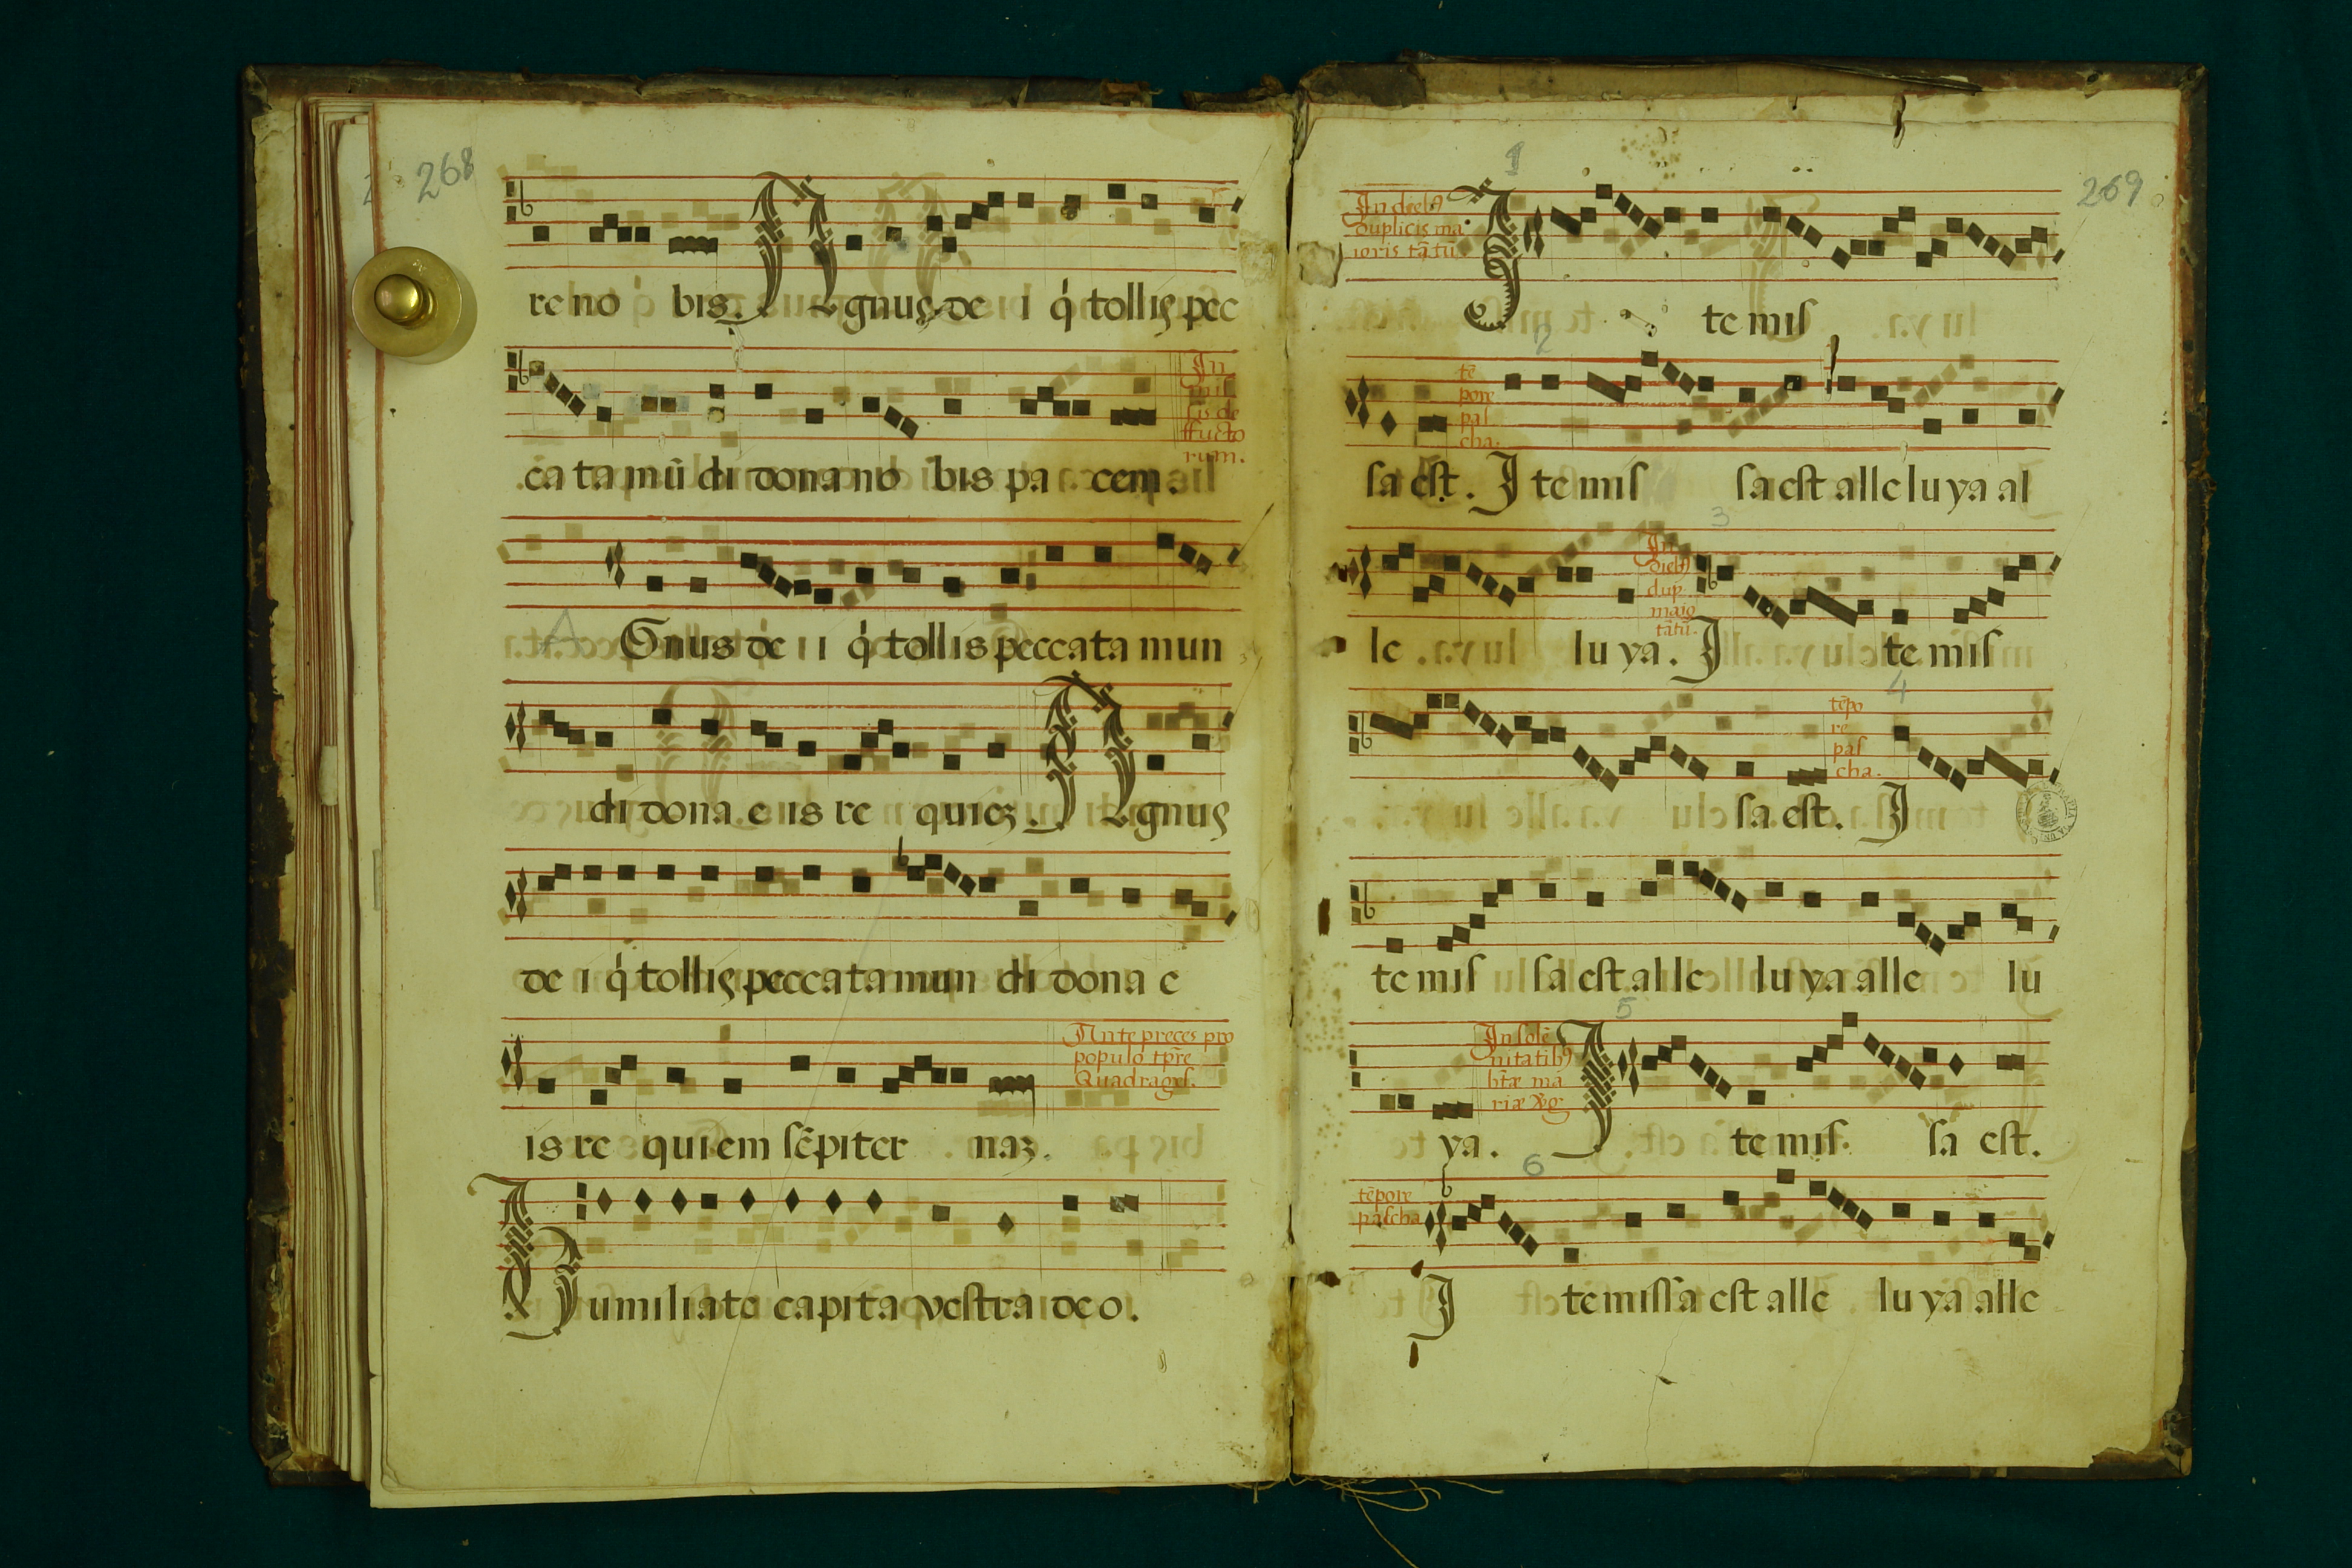 268
re no bis. Agnus de i q̇ tollis pec
In
mis
sis de
ffucto
rum.
ca ta mū di dona no bis pa cem.
A
Gnus de i i q̇ tollis peccata mun
di dona e is re quiez. Agnus
de i q̇ tollis peccata mun di dona e
Ante preces pro
populo tp̄re
Quadrages.
is re quiem sēpiter naz.
Humiliate capita vestra deo.
269
1
In dieb9
duplicis ma
ioris tātū
Ite mis
2
tē
pore
pas
cha.
sa est. Ite mis sa est alleluya al
3
In
dieb9
dup
maio
tātū.
le lu ya. I te mis
4
tēpo
re
pas
cha.
sa est. I
te mis sa est alle lu ya alle lu
5
In solē
nitatib9
btæ ma
riæ v̄g
ya. Ite mis sa est.
6
tēpore
pascha
I te missa est alle lu ya alle